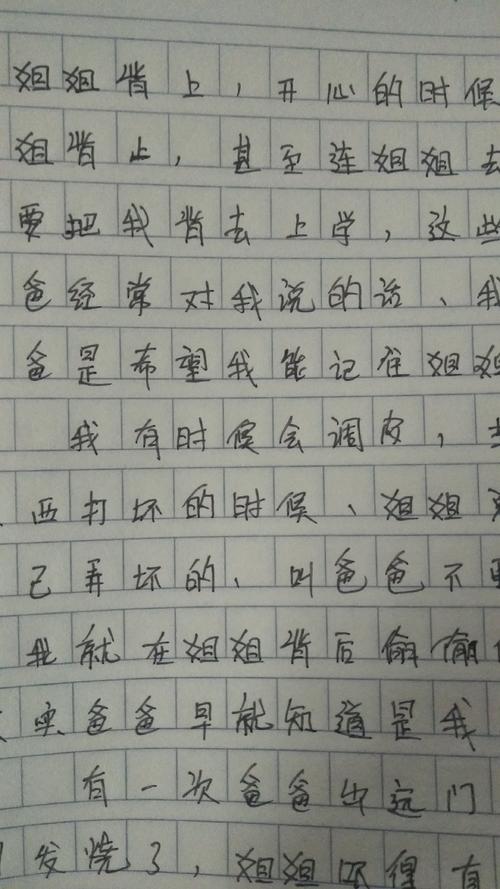 姐姐背上，开心的时候
姐背上，甚至连姐姐去
要把我背去上学，这些
爸经常对我说的话、我
爸是希望我能记住姐姐
我有时候会调皮，
西打坏的时候、姐姐
己弄坏的、叫爸爸不
我就在姐姐背后偷偷
实爸爸早就知道是我
有一次爸爸出远门
发烧了，姐姐还得有